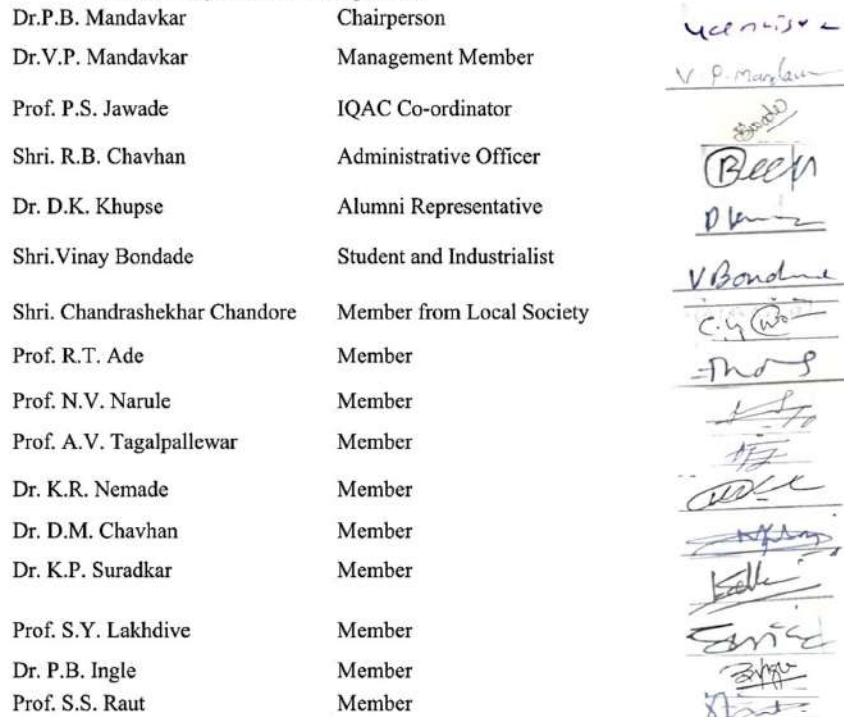 Dr.P.B. Mandavkar Chairperson
Dr.V.P. Mandavkar Management Member V.P. Mandavkar
Prof. P.S. Jawade IQAC Co-ordinator
Shri. R.B. Chavhan Administrative Officer
Dr. D.K. Khupse Alumni Representative
Shri.Vinay Bondade Student and Industrialist V Bondade
Shri. Chandrashekhar Chandore Member from Local Society
Prof. R.T. Ade Member
Prof. N.V. Narule Member
Prof. A.V. Tagalpallewar Member
Dr. K.R. Nemade Member
Dr. D.M. Chavhan Member
Dr. K.P. Suradkar Member
Prof. S.Y. Lakhdive Member
Dr. P.B. Ingle Member
Prof. S.S. Raut Member